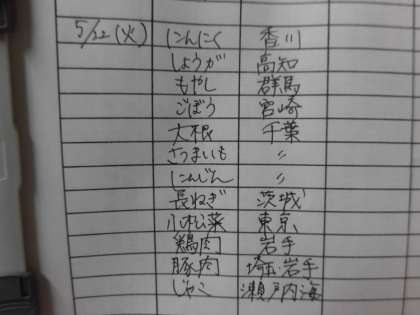 5/22(火) にんにく 香川
しょうが 高知
もやし 群馬
ごぼう 宮崎
大根 千葉
さつまいも 〃
にんじん 〃
長ねぎ 茨城
小松菜 東京
鶏肉 岩手
豚肉 埼玉 岩手
じゃこ 瀬戸内海